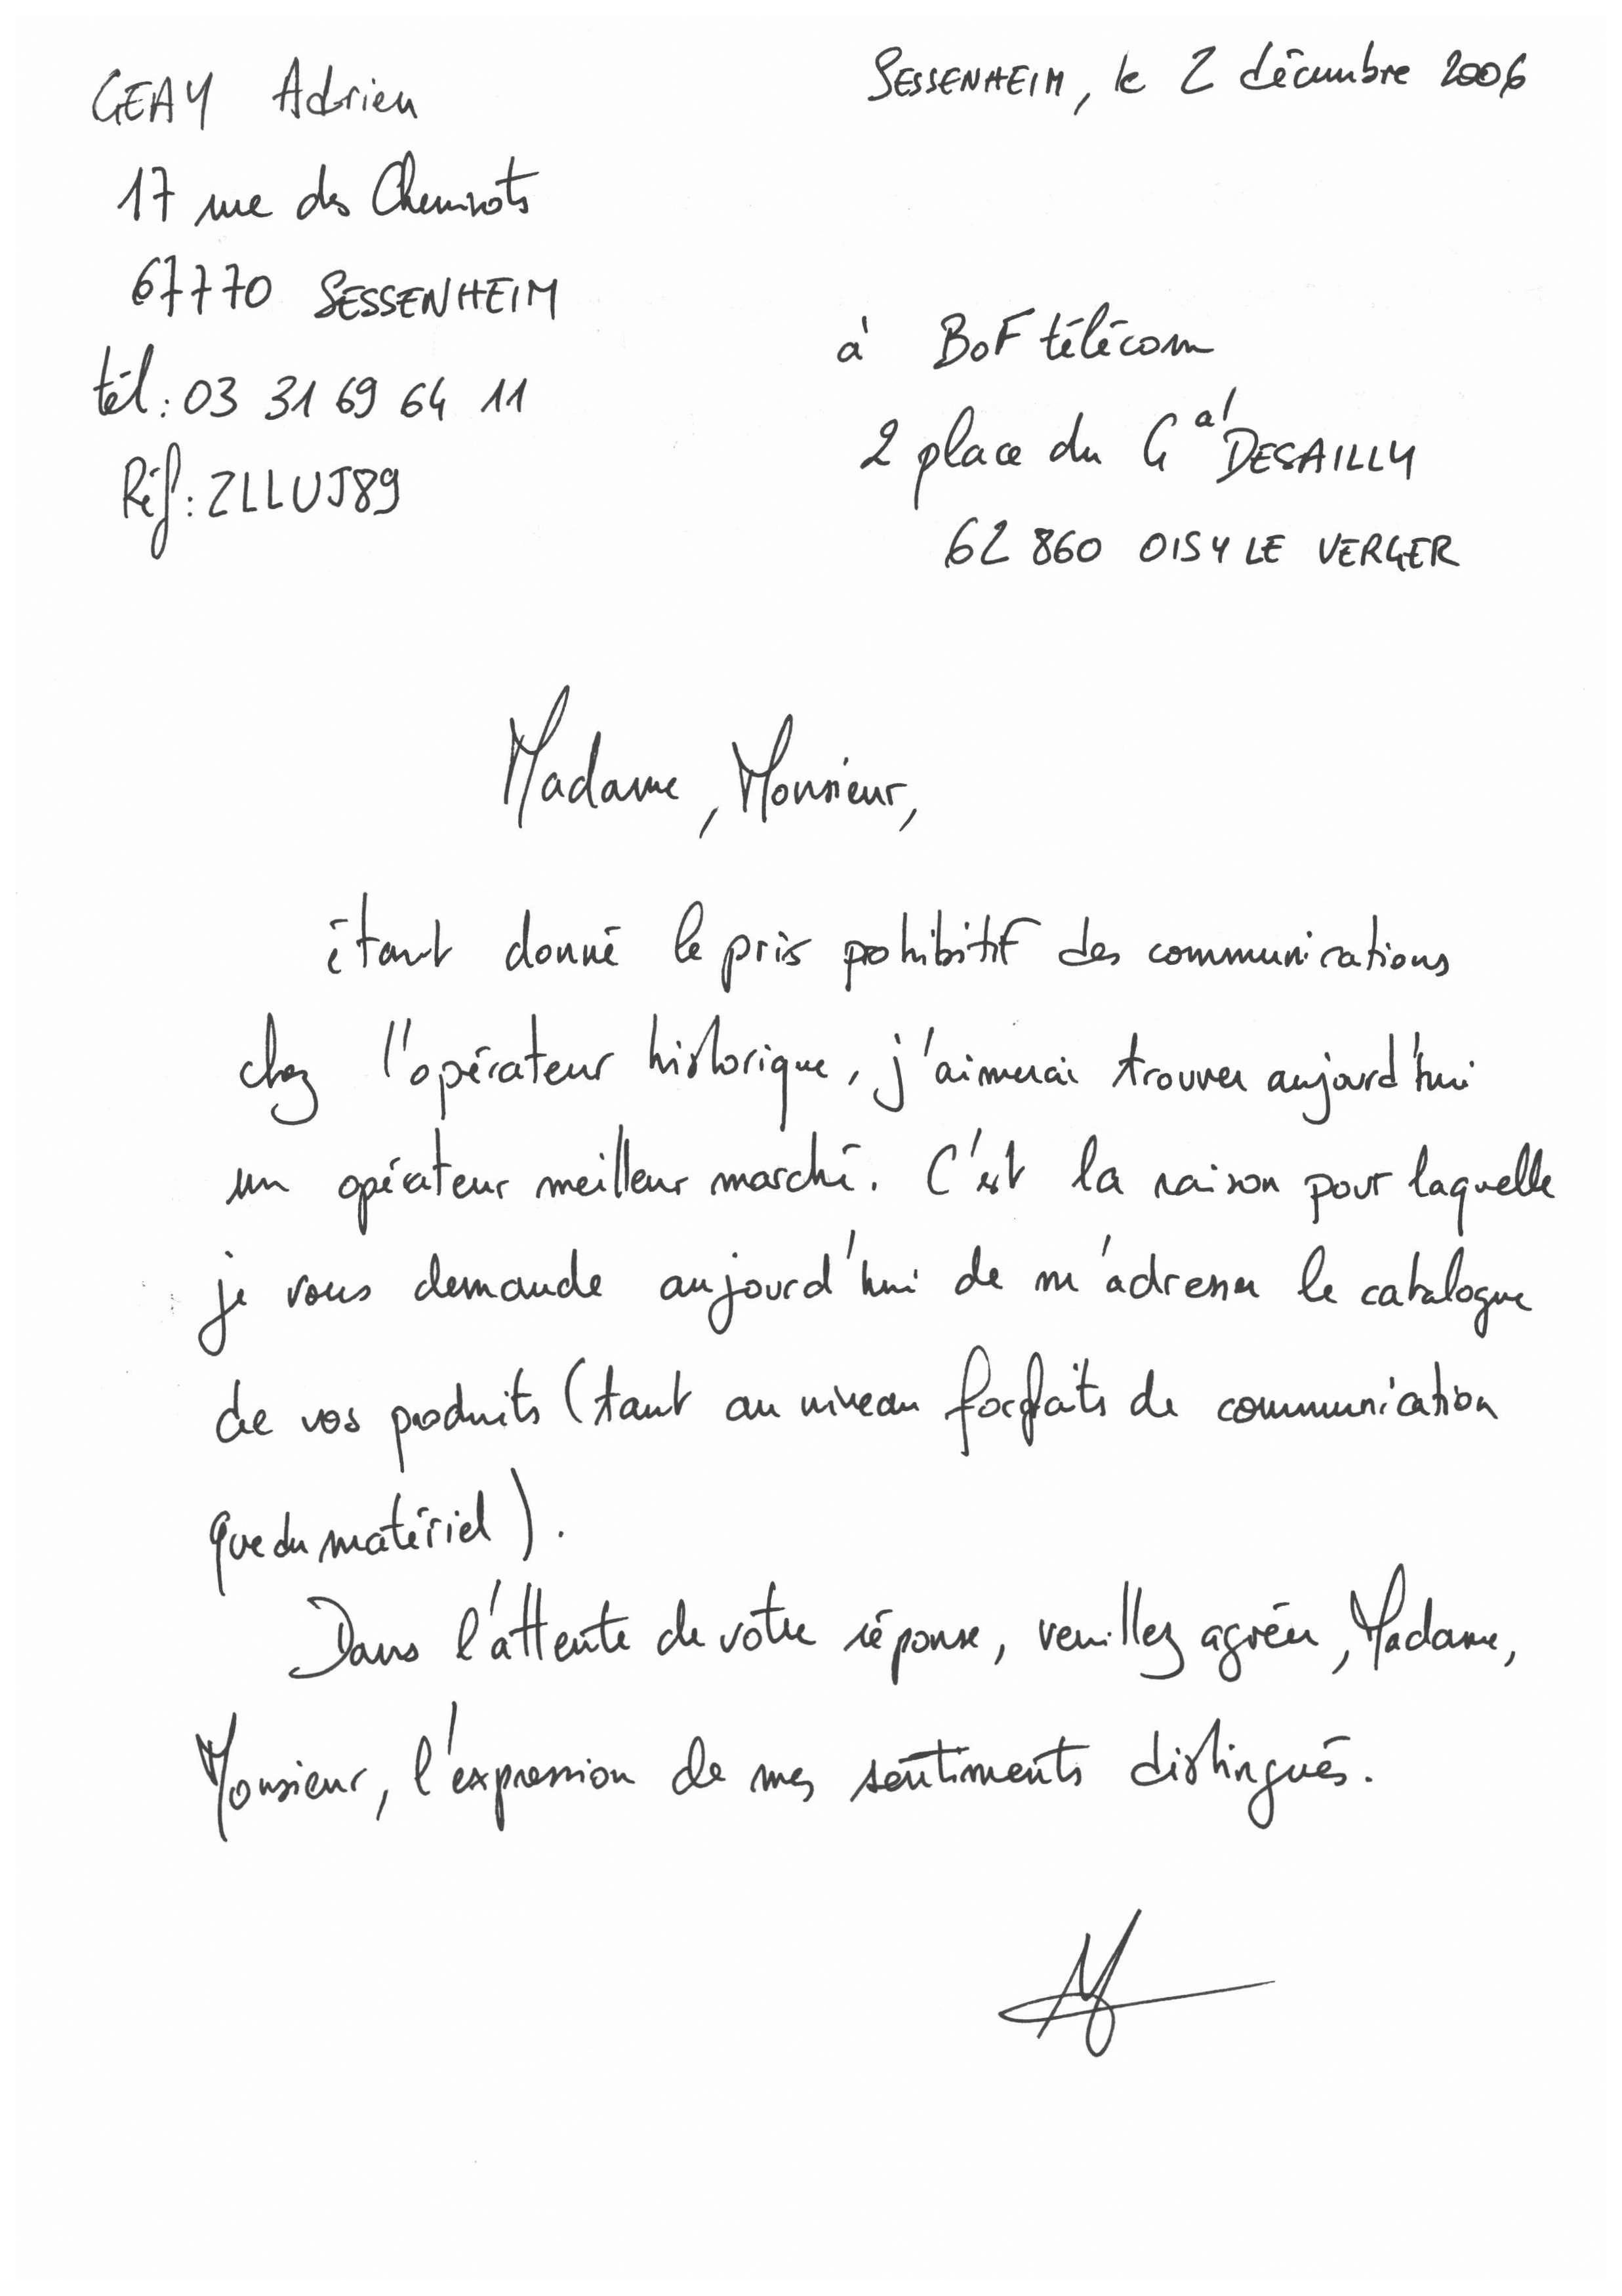 GEAY Adrien
SESSENHEIM, le 2 décembre 2006
17 rue des Cheminots
67770 SESSENHEIM
tél : 03 31 69 64 11
Réf : ZLLUJ89
à BoF télécom
2 place du Gal DESAILLY
62 860 OISY LE VERGER
Madame, Monsieur,
étant donné le prix prohibitif des communications
chez l'opérateur historique, j'aimerai trouver aujourd'hui
un opérateur meilleur marché. C'est la raison pour laquelle
je vous demande aujourd'hui de m'adresser le catalogue
de vos produits (tant au niveau forfaits de communication
que du matériel).
Dans l'attente de votre réponse, veuillez agréer, Madame,
Monsieur, l'expression de mes sentiments distingués.